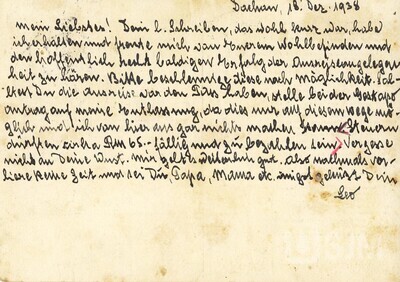 Dachau, 18. Dez. 1938
Mein Liebster! Dein l. Schreiben, das wohl kurz war, habe
ich erhalten und freute mich von Eurem Wohlbefinden und
den hoffentlich recht baldigen Erfolg der Ausreiseangelegen
heit zu hören. Bitte beschleunige diese nach Möglichkeit. Soll-
test Du die Ausreise vor den haben, stelle bei der Gestapo
Antrag auf meine Entlassung, da dies nur auf diesem Wege mö-
glich und ich von hier aus gar nichts machen kann. Steuern
dürften circa RM 65.- fällig und zu bezahlen sein. Vergesse
nicht an Deine Wust. Mir geht es weiterhin gut. Also nochmals ver-
liere keine Zeit und sei Du, Papa, Mama etc. innigst geküsst Dein
Leo